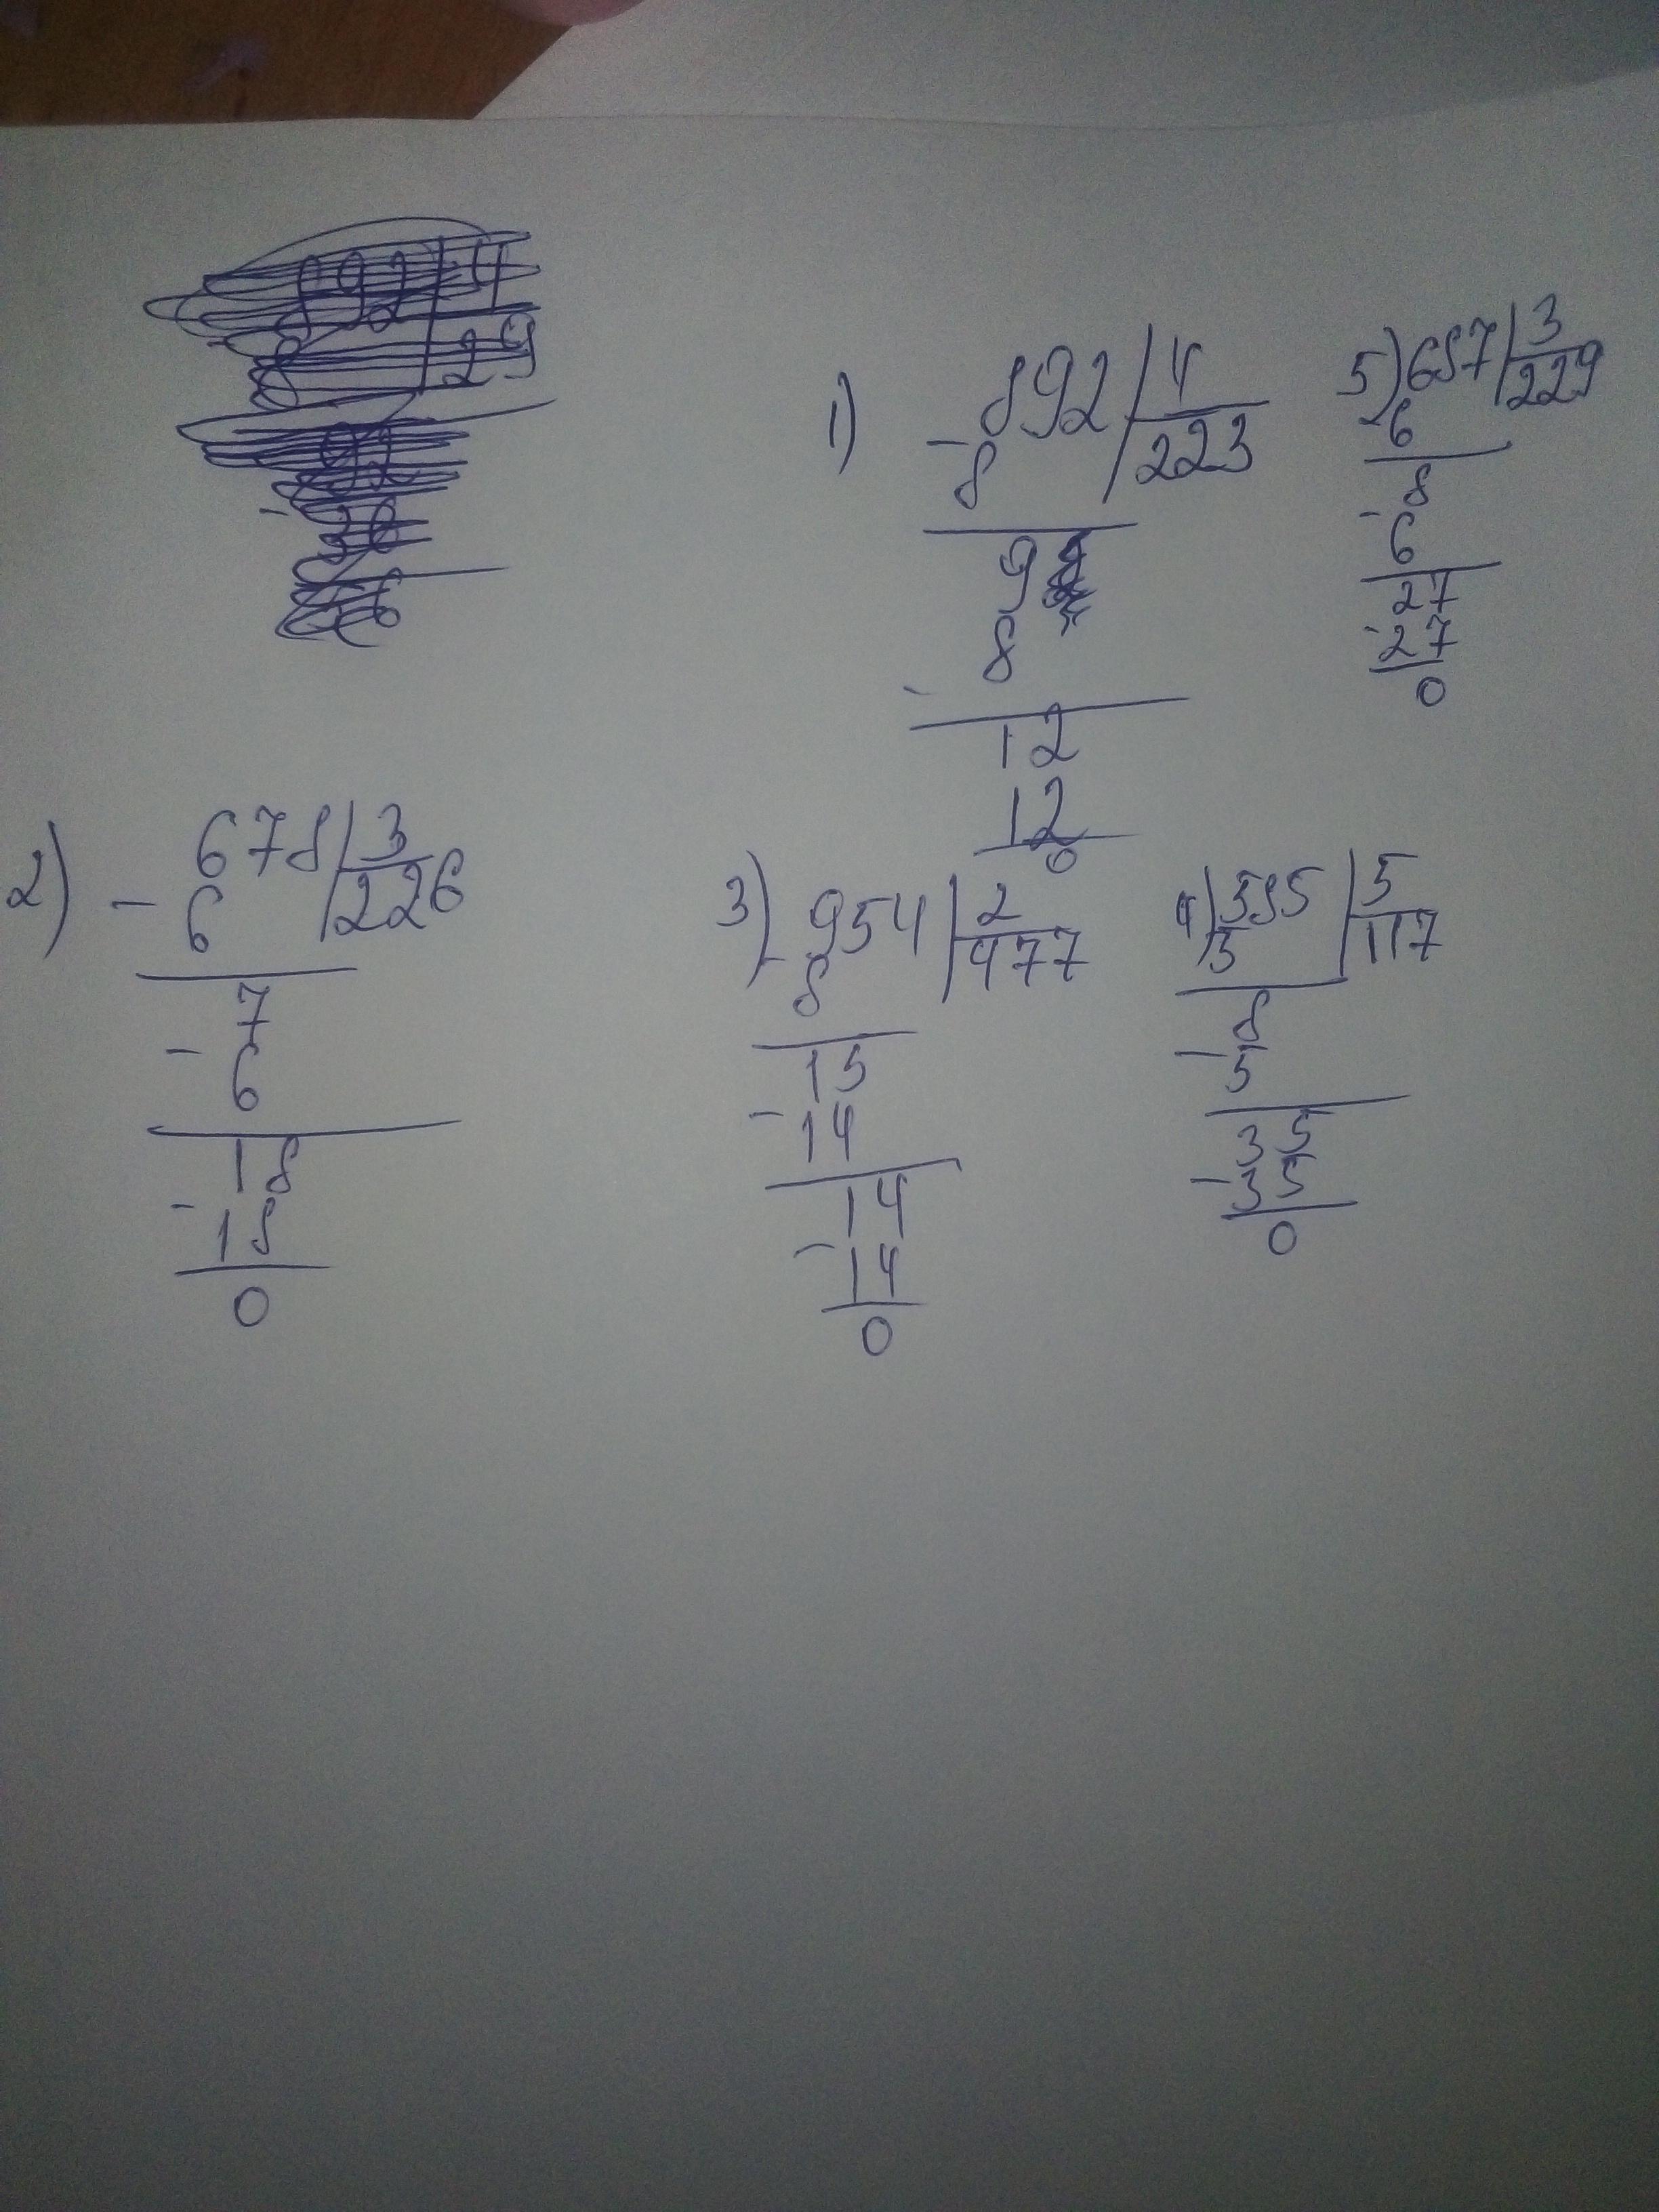 892 4
8 29
92
36
1) 892 4
- 8 223
9
- 8
12
12
0
5) 687 3
- 6 229
8
- 6
27
- 27
0
2) 678 3
- 6 226
7
- 6
18
- 18
0
3) 954 2
- 8 477
15
- 14
14
- 14
0
4) 585 5
5 117
8
- 5
35
- 35
0